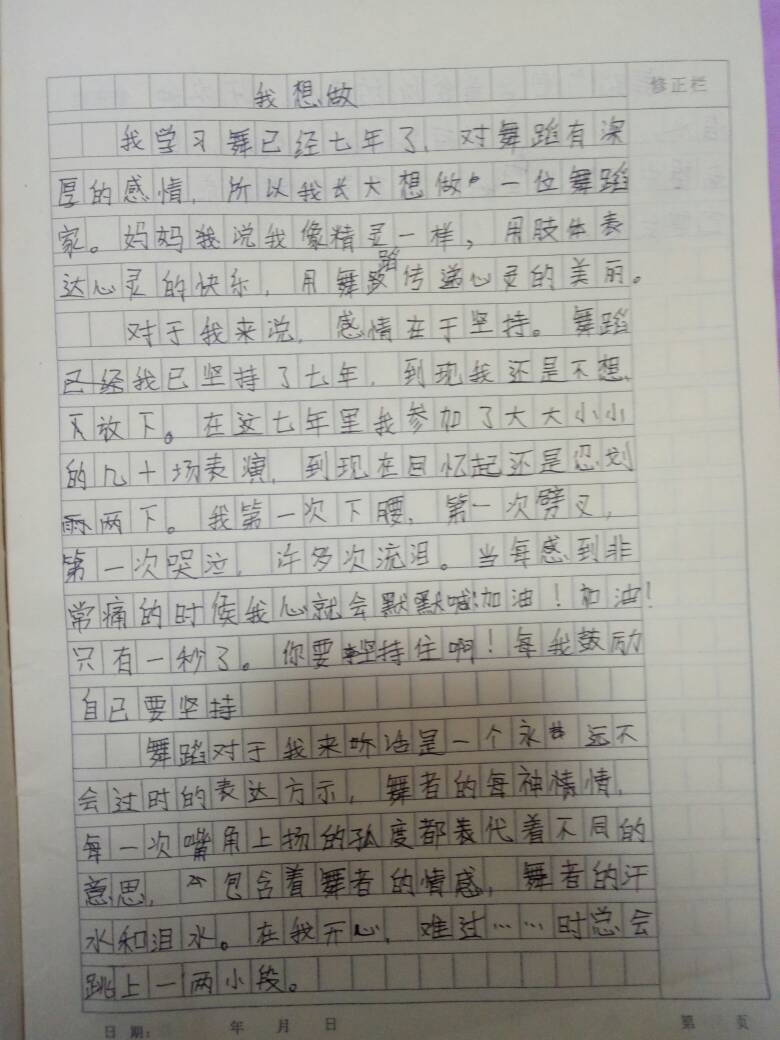 我想做
修正栏
我学习舞已经七年了，对舞蹈有深
厚的感情，所以我长大想做一位舞蹈
家。妈妈我说我像精灵一样，用肢体表
达心灵的快乐，用舞蹈传递心灵的美丽。
对于我来说，感情在于坚持。舞蹈
我已坚持了七年，到现我还是不想
放下。在这七年里我参加了大大小小
的几十场表演，到现在回忆起还是忍划
两下。我第一次下腰，第一次劈叉，
第一次哭泣，许多次流泪。当每感到非
常痛的时候我心就会默默喊：加油！加油！
只有一秒了。你要坚持住啊！每我鼓励
自己要坚持
舞蹈对于我来说是一个永远不
会过时的表达方示，舞者的每神情情，
每一次嘴角上扬的弧度都表代着不同的
意思，包含着舞者的情感，舞者的汗
水和泪水。在我开心，难过……时总会
跳上一两小段。
日期： 年 月 日 第 页